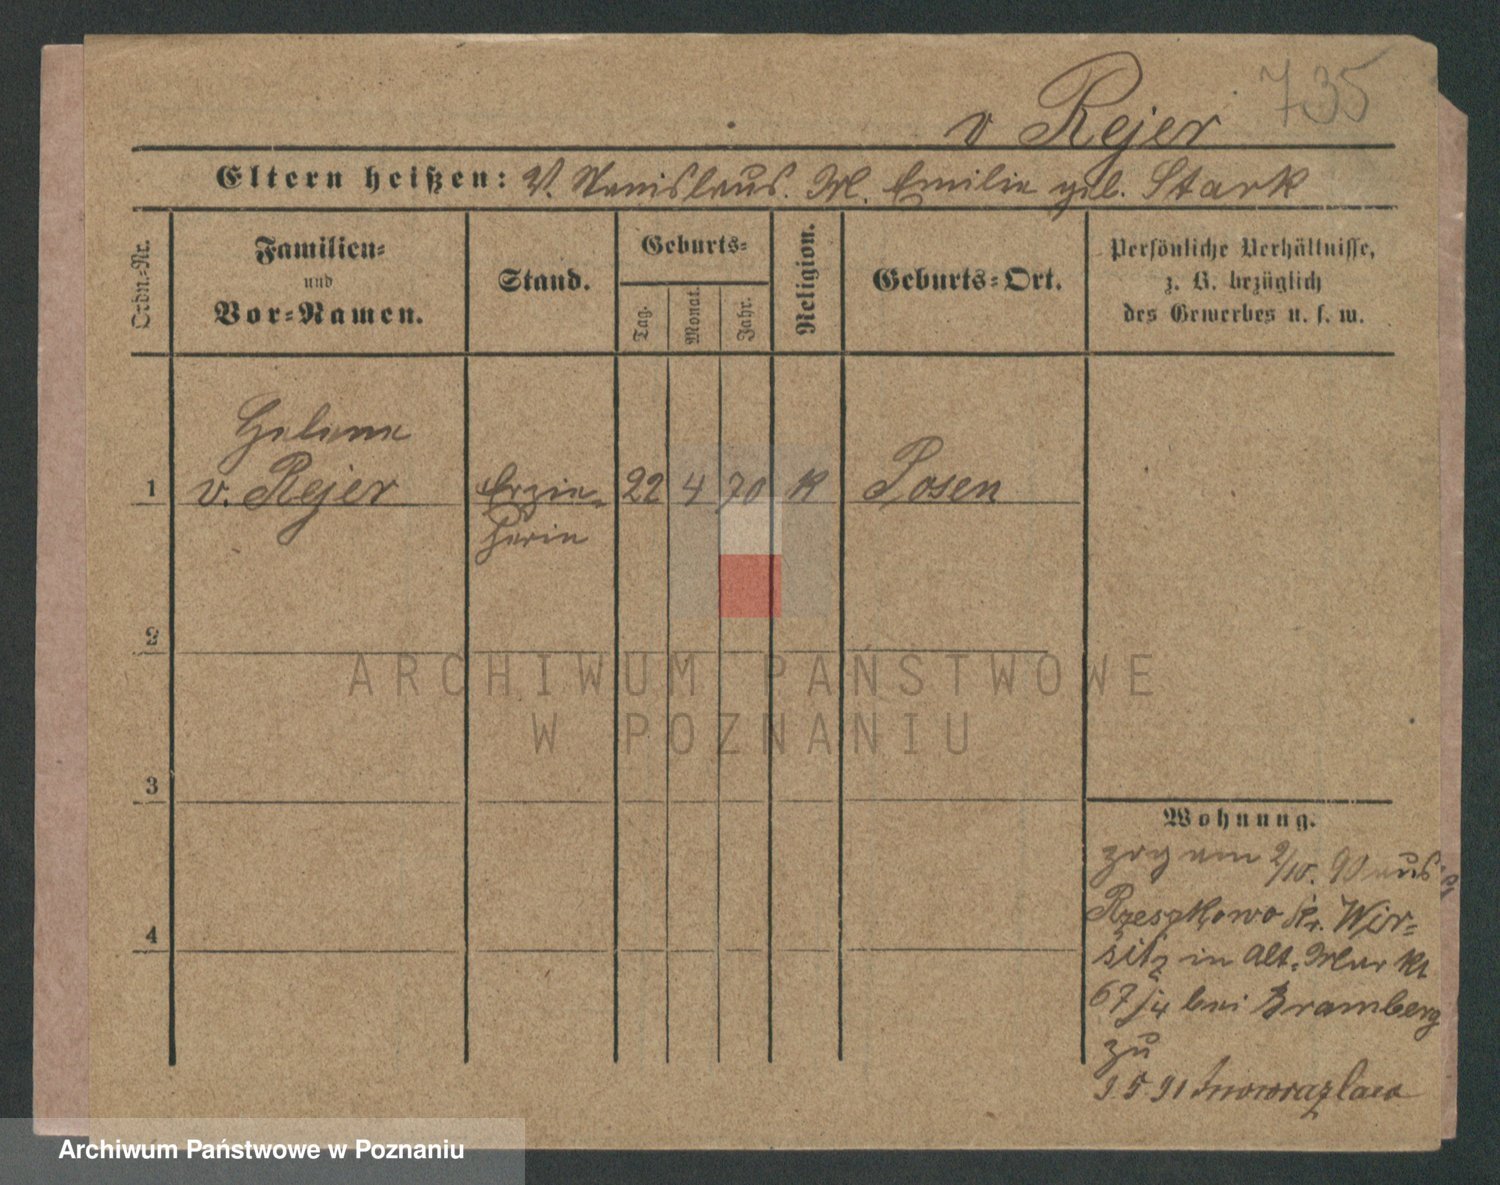 735
v Rejer
Eltern heißen: V. Stanislaus. M. Emilie geb. Stark
Ordn.-Nr.
Familien-
und
Vor-Namen.
Stand.
Geburts-
Tag.
Monat.
Jahr.
Religion.
Geburts-Ort.
Persönliche Verhältnisse,
z. B. bezüglich
des Gewerbes u. s. w.
Helene
1 v. Rejer Erzie- 22 4 70 K Posen
herin
2
3
4
Wohnung.
zog am 2/10. 90 aus
Rzeszkowo Kr. Wir-
sitz in Alt. Markt
67 bei Bramberg
zu
9.5.91 Inowrazlaw
ARCHIWUM PAŃSTWOWE
W POZNANIU
Archiwum Państwowe w Poznaniu